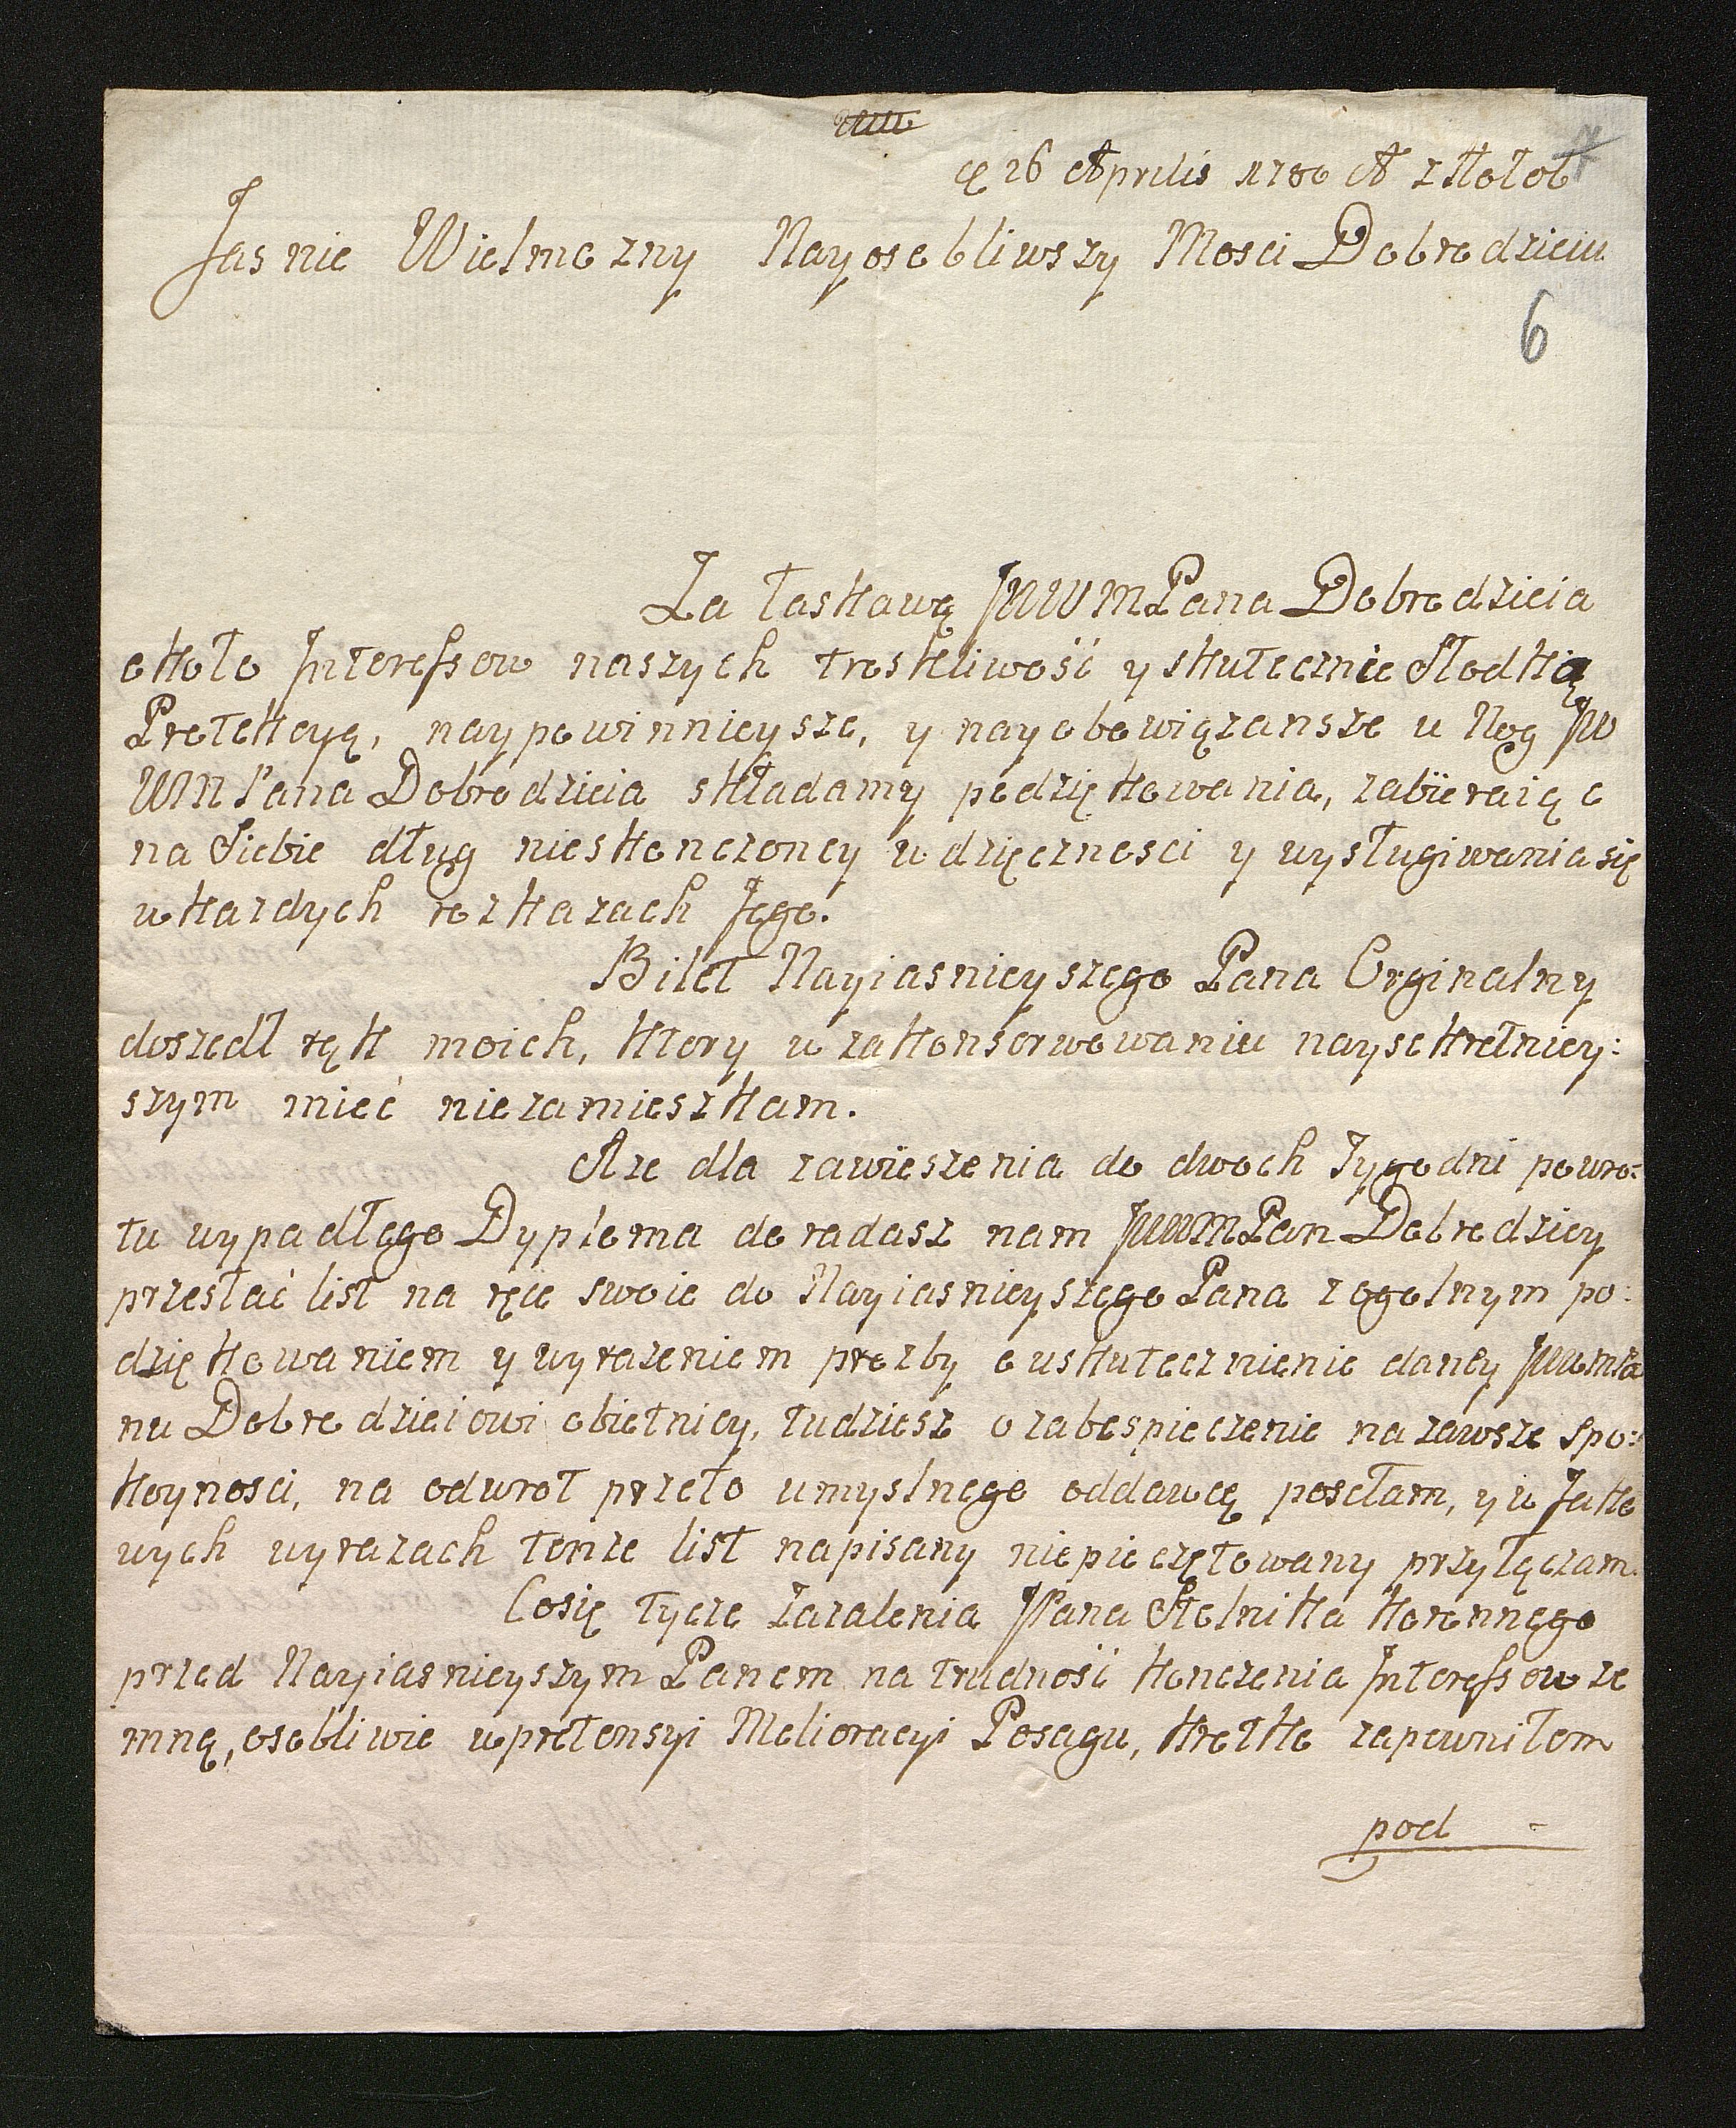 26 Aprilis 1786 A z Hołob
Jasnie Wielmozny Nayosobliwszy Mosci Dobrodzieiu
6
Za łaskawą JWWMPana Dobrodzieia
około Interessow naszych troskliwość y skutecznie słodką
Protekcyą, naypowinnieysze, y nayobowiązansze u Nog JW
WMPana Dobrodzieia składamy podziękowania, zabieraiąc
na Siebie dług nieskonczoney wdzięcznosci y wysługiwania się
w kazdych rozkazach Jego.
Bilet Nayiasnieyszego Pana Orginalny
doszedł rąk moich, ktory w zakonserwowaniu naysekretniey:
szym mieć niezamieszkam.
Aze dla zawieszenia do dwoch Tygodni powro:
tu wypadłego Dyploma doradasz nam JWWMPan Dobrodziey
przesłać list na ręce swoie do Nayiasnieyszego Pana z ogolnym po:
dziękowaniem y wyrazeniem prozby o uskutecznienie daney JWWMPa
nu Dobrodzieiowi obietnicy, tudziesz o zabespieczenie na zawsze spo:
koynosci, na odwrot przeto umyslnego oddawcę posełam, y w Jako
wych wyrazach tenze list napisany niepieczętowany przyłączam.
Cosię tycze Zazalenia JPana Stolnika Koronnego
przed Nayiasnieyszym Panem na trudność konczenia Interessow ze
mną, osobliwie w pretensyi Melioracyi Posagu, krotko zapewniłem
pod -